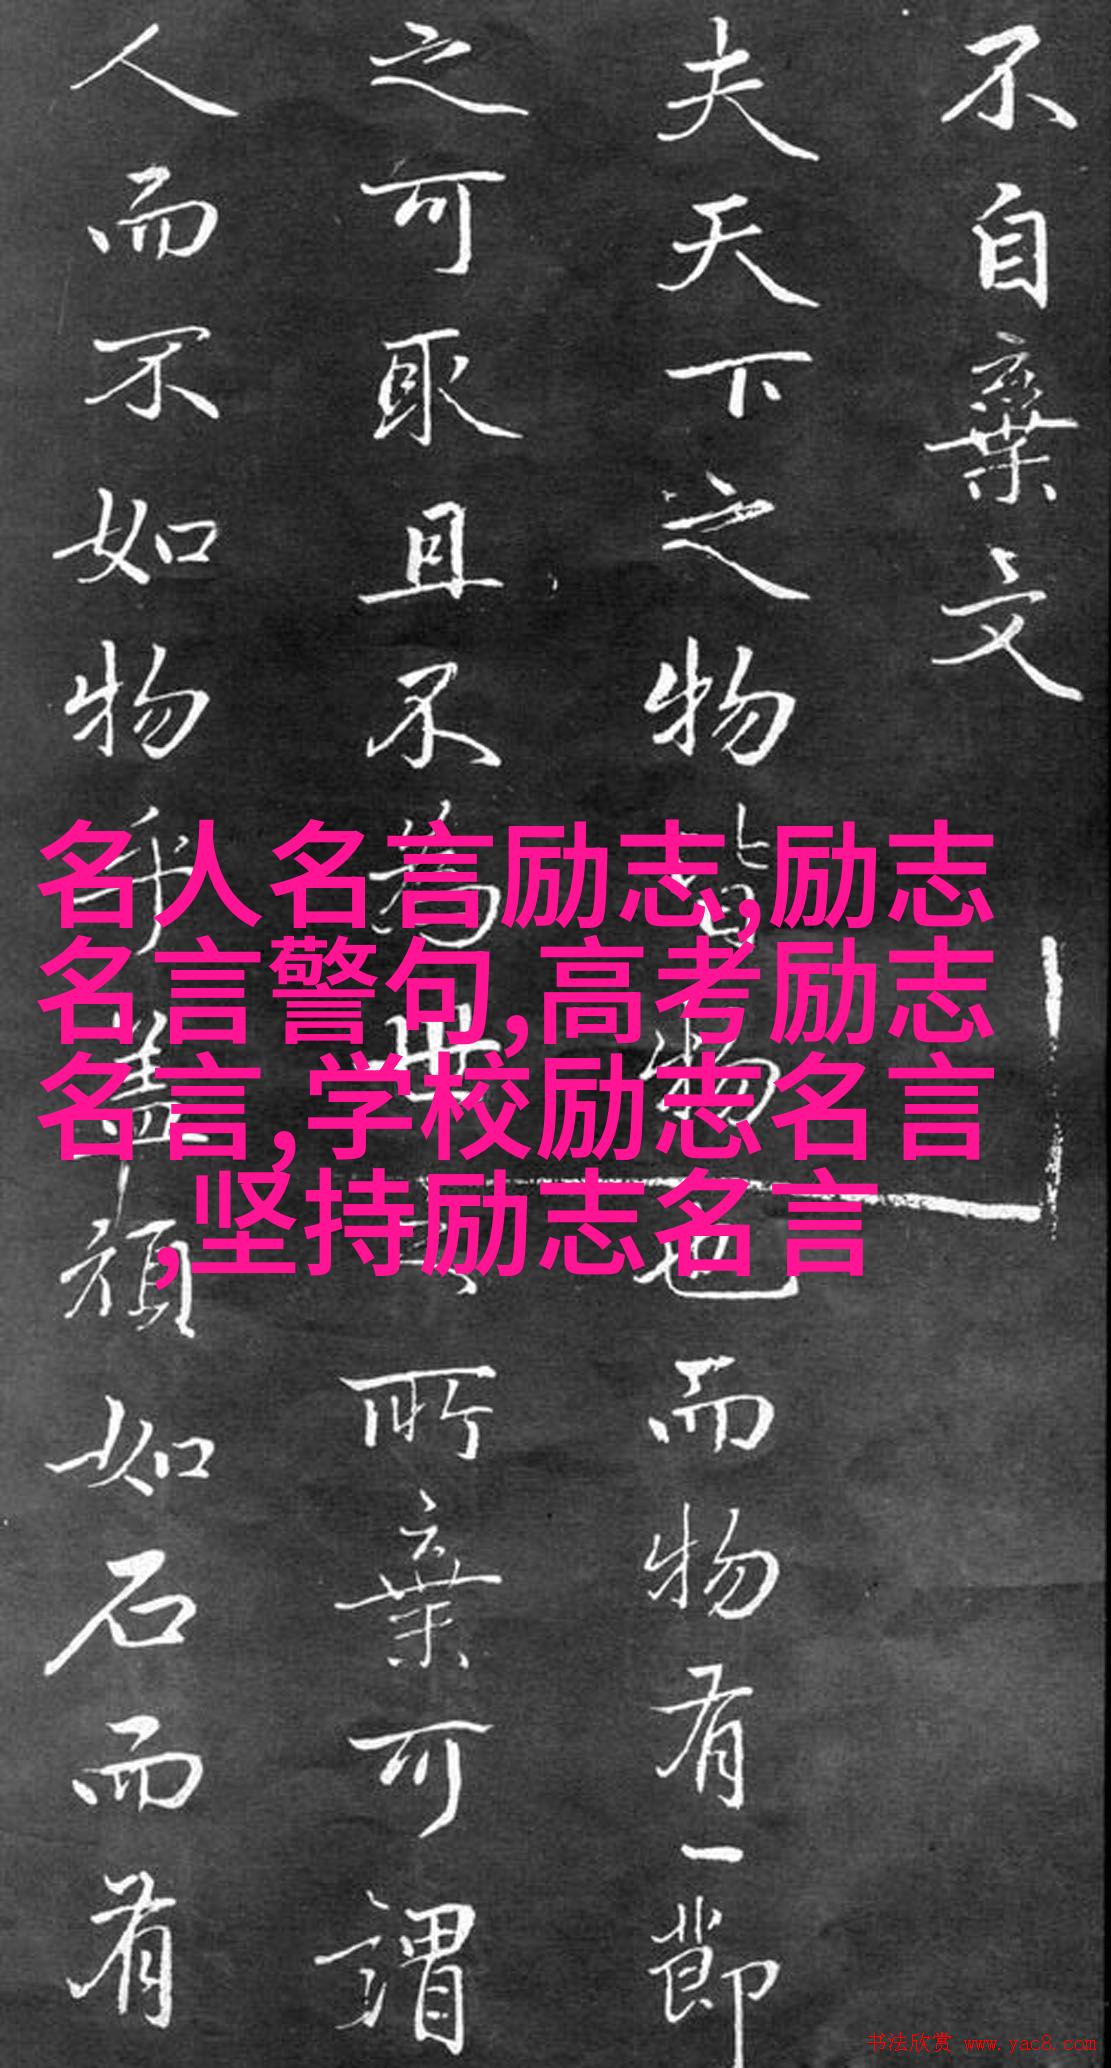 不自棄文
夫天下之物皆物也而物有一節
之可取且不為世之所棄可謂
人而不如物乎盖頑如石而有
名人名言励志,励志
名言警句,高考励志
名言,学校励志名言
,坚持励志名言
书法欣赏 www.yac8.com